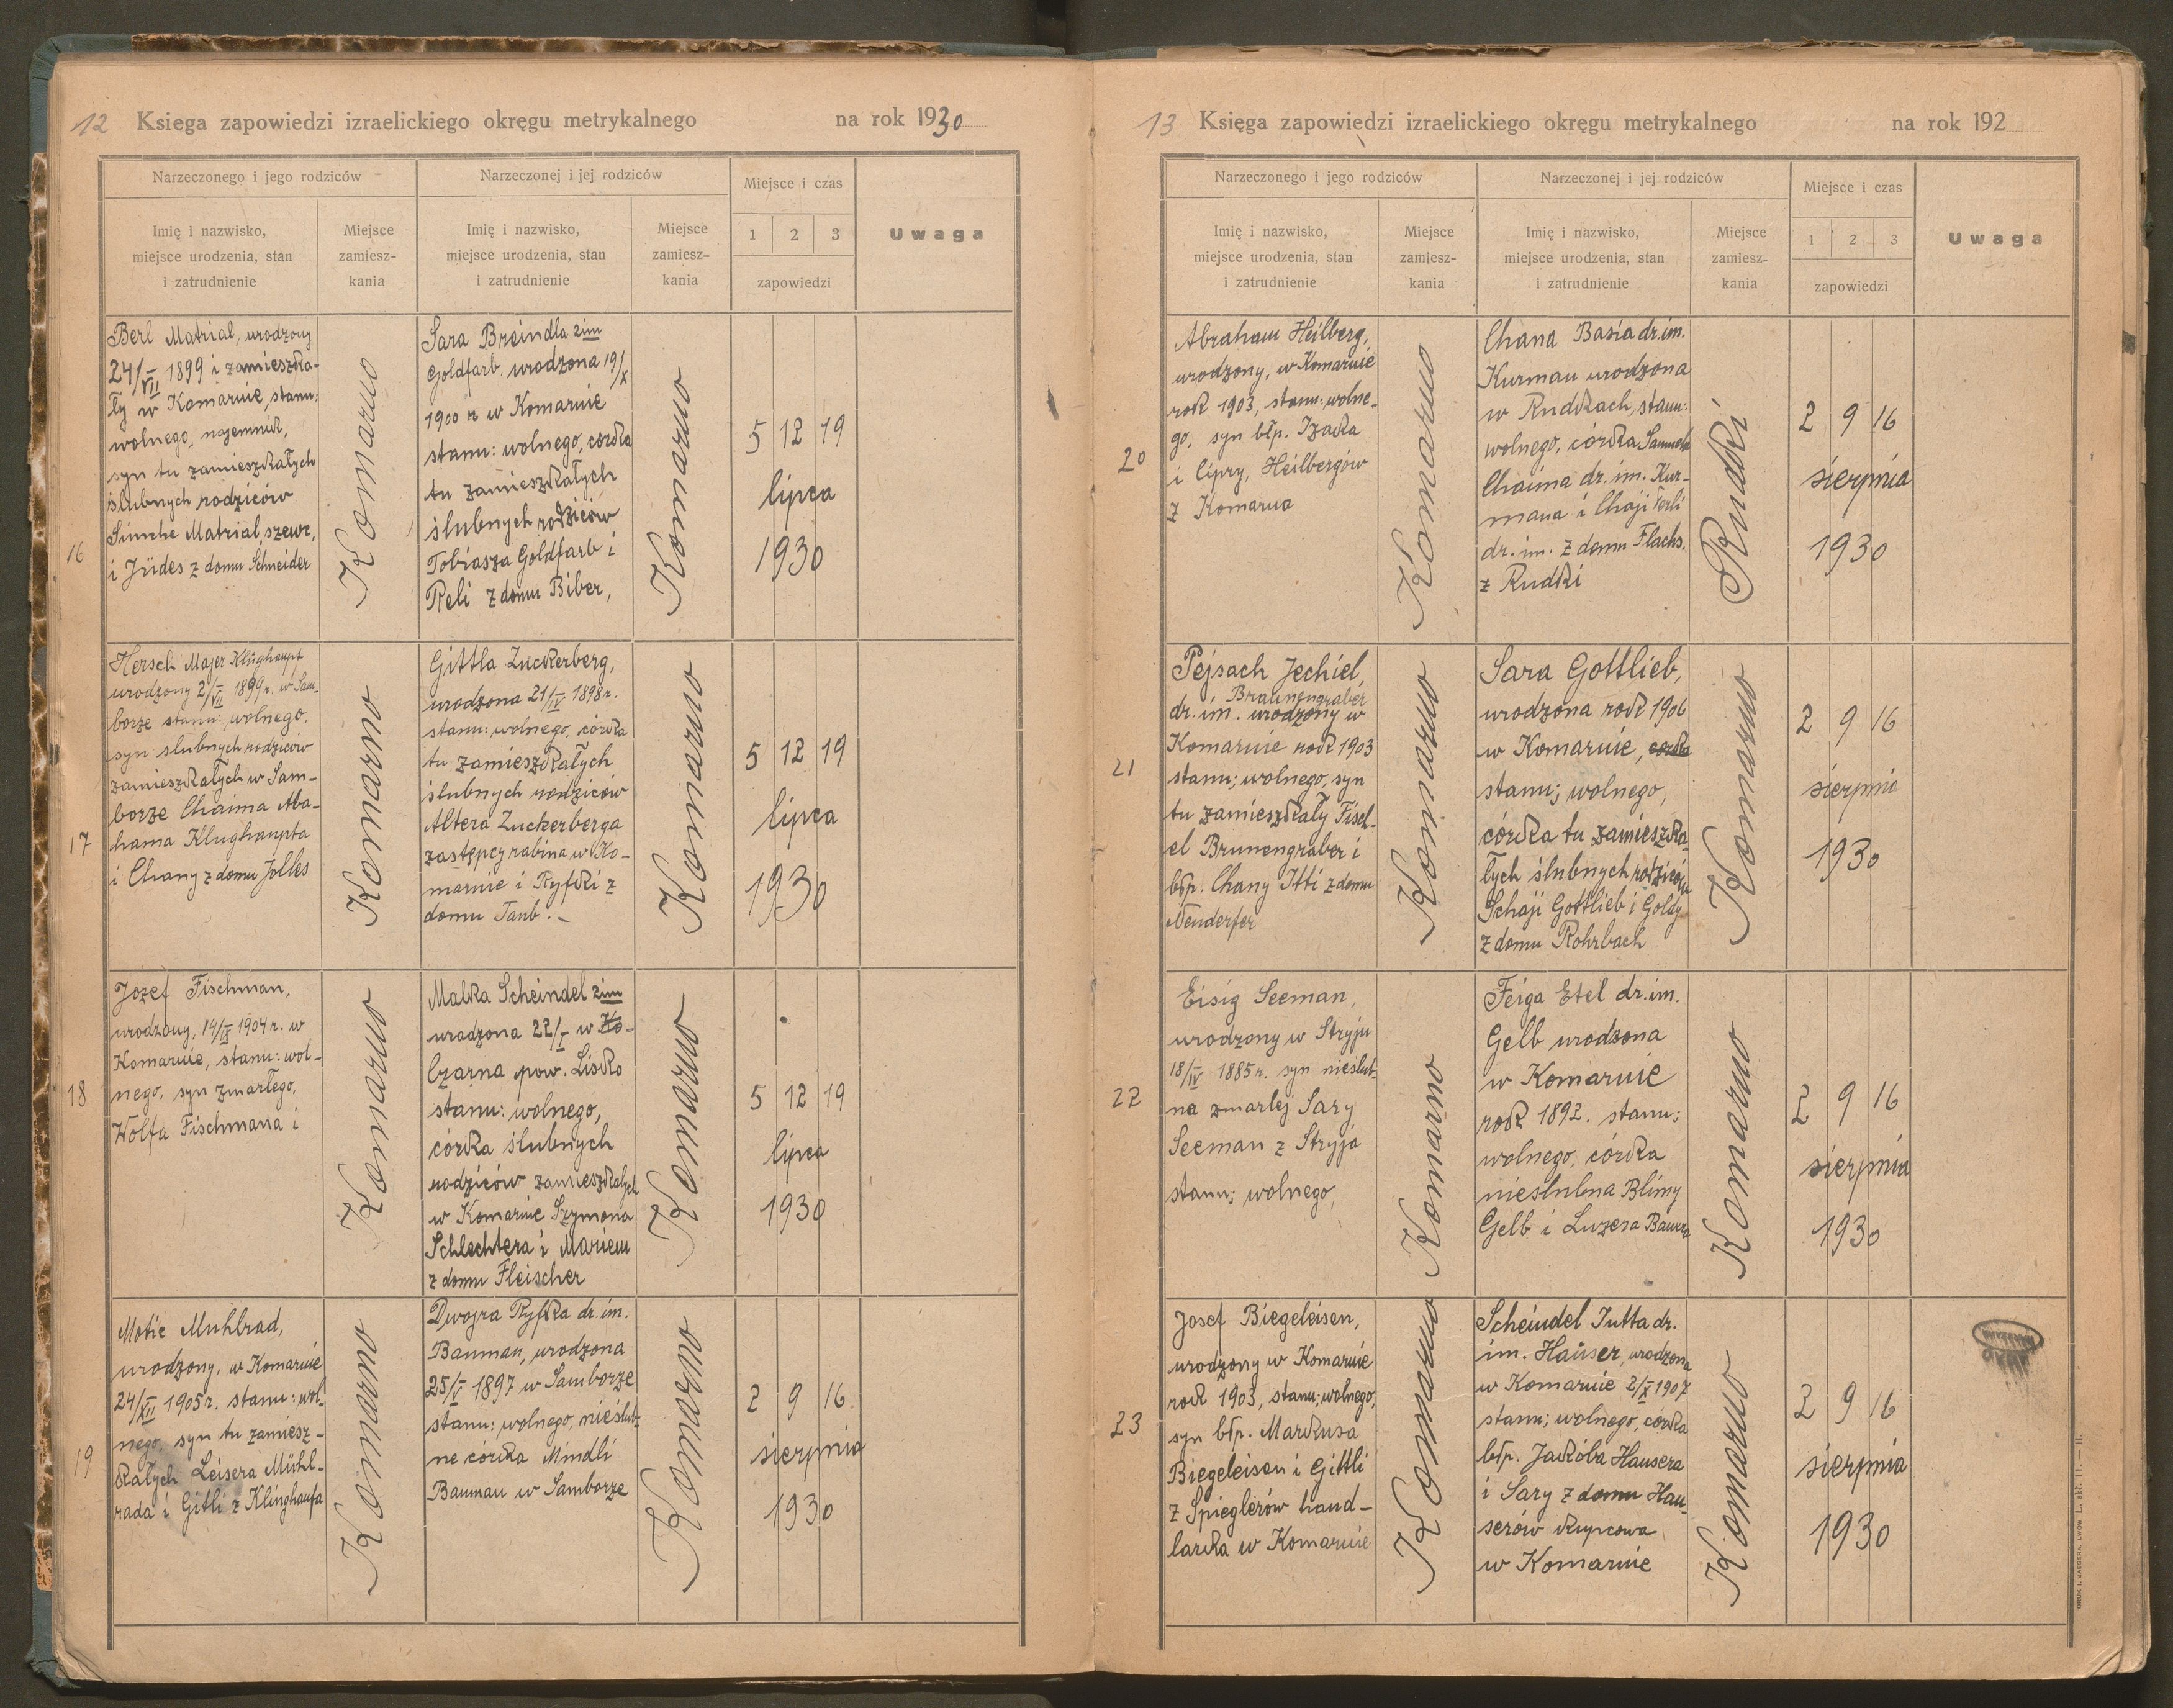 12 Księga zapowiedzi izraelickiego okręgu metrykalnego na rok 1930
Narzeczonego i jego rodziców
Narzeczonej i jej rodziców
Miejsce i czas
Uwaga
Imię i nazwisko,
miejsce urodzenia, stan
i zatrudnienie
Miejsce
zamiesz-
kania
Imię i nazwisko,
miejsce urodzenia, stan
i zatrudnienie
Miejsce
zamiesz-
kania
1 2 3
zapowiedzi
16
Berl Matrial, urodzony
24/VII 1899 i zamieszka-
ły w Komarnie, stanu:
wolnego, najemnik,
syn tu zamieszkałych
ślubnych rodziców
Simche Matrial, szewc,
i Jüdes z domu Schneider
Komarno
Sara Breindla 2im
Goldfarb, urodzona 19/X
1900 r w Komarnie
stanu: wolnego, córka
tu zamieszkałych
ślubnych rodziców
Tobiasza Goldfarb i
Reli z domu Biber,
Komarno
5 12 19
lipca
1930
17
Hersch Majer Klughaupt
urodzony 2/VII 1899 r. w Sam-
borze stanu: wolnego,
syn slubnych rodziców
zamieszkałych w Sam-
borze Chaima Aba-
hama Klughaupta
i Chany z domu Jolles
Komarno
Gittla Zuckerberg,
urodzona 21/IV 1898 r.
stanu: wolnego, córka
tu zamieszkałych
ślubnych rodziców
Altera Zuckerberga
zastępcy rabina w Ko-
marnie i Ryfki z
domu Taub. –
Komarno
5 12 19
lipca
1930
18
Jozef Fischman,
urodzony, 14/IX 1904 r. w
Komarnie, stanu: wol-
nego, syn zmarłego,
Wolfa Fischmana i
Komarno
Malka Scheindel 2im
urodzona 22/I w Ko-
Czarna pow. Lisko
stanu: wolnego,
córka ślubnych
rodziców zamieszkałych
w Komarnie Szymona
Schlechtera i Mariem
z domu Fleischer
Komarno
5 12 19
lipca
1930
19
Motie Muhlrad,
urodzony, w Komarnie
24/XII 1905 r. stanu: wol-
nego, syn tu zamiesz-
kałych Leisera Mühl-
rada i Gitli z Klinghaufa
Komarno
Dwojra Ryfka dr. im.
Bauman, urodzona
25/V 1897 w Samborze
stanu: wolnego, nieślub-
ne córka Mindli
Bauman w Samborze
Komarno
2 9 16
sierpnia
1930
13 Księga zapowiedzi izraelickiego okręgu metrykalnego na rok 192
Narzeczonego i jego rodziców
Narzeczonej i jej rodziców
Miejsce i czas
Uwaga
Imię i nazwisko,
miejsce urodzenia, stan
i zatrudnienie
Miejsce
zamiesz-
kania
Imię i nazwisko,
miejsce urodzenia, stan
i zatrudnienie
Miejsce
zamiesz-
kania
1 2 3
zapowiedzi
20
Abraham Heilberg,
urodzony, w Komarnie
rok 1903, stanu: wolne-
go, syn błp. Izaka
i Cipry, Heilbergów
z Komarna
Komarno
Chana Basia dr. im.
Kurman urodzona
w Rudkach, stanu:
wolnego, córka Samuela
Chaima dr. im. Kur-
mana i Chaji Perli
dr. im. z domu Flachs.
z Rudki
Rudki
2 9 16
sierpnia
1930
21
Pejsach Jechiel,
Braunengraber
dr. im. urodzony w
Komarnie rok 1903
stanu; wolnego, syn
tu zamieszkały Fisch-
el Brunengraber i
błp. Chany Itti z domu
Neuderfer
Komarno
Sara Gottlieb,
urodzona rok 1906
w Komarnie, córka
stanu; wolnego,
córka tu zamieszka-
łych ślubnych rodziców
Schaji Gottlieb i Goldy
z domu Rohrbach
Komarno
2 9 16
sierpnia
1930
22
Eisig Seeman,
urodzony w Stryju
18/IV 1885 r. syn nieślub-
na zmarłej Sary
Seeman z Stryja
stanu; wolnego,
Komarno
Feiga Etel dr. im.
Gelb urodzona
w Komarnie
rok 1892. stanu;
wolnego, córka
nieslubna Blimy
Gelb i Luzera
Komarno
2 9 16
sierpnia
1930
23
Josef Biegeleisen,
urodzony w Komarnie
rok 1903, stanu; wolnego,
syn błp. Markusa
Biegeleisen i Gittli
z Spieglerów hand-
larka w Komarnie
Komarno
Scheindel Jutta dr.
im. Hauser, urodzona
w Komarnie 2/X 1907
stanu; wolnego, córka
błp. Jakóba Hausera
i Sary z domu Hau-
serów kupcowa
w Komarnie
Komarno
2 9 16
sierpnia
1930